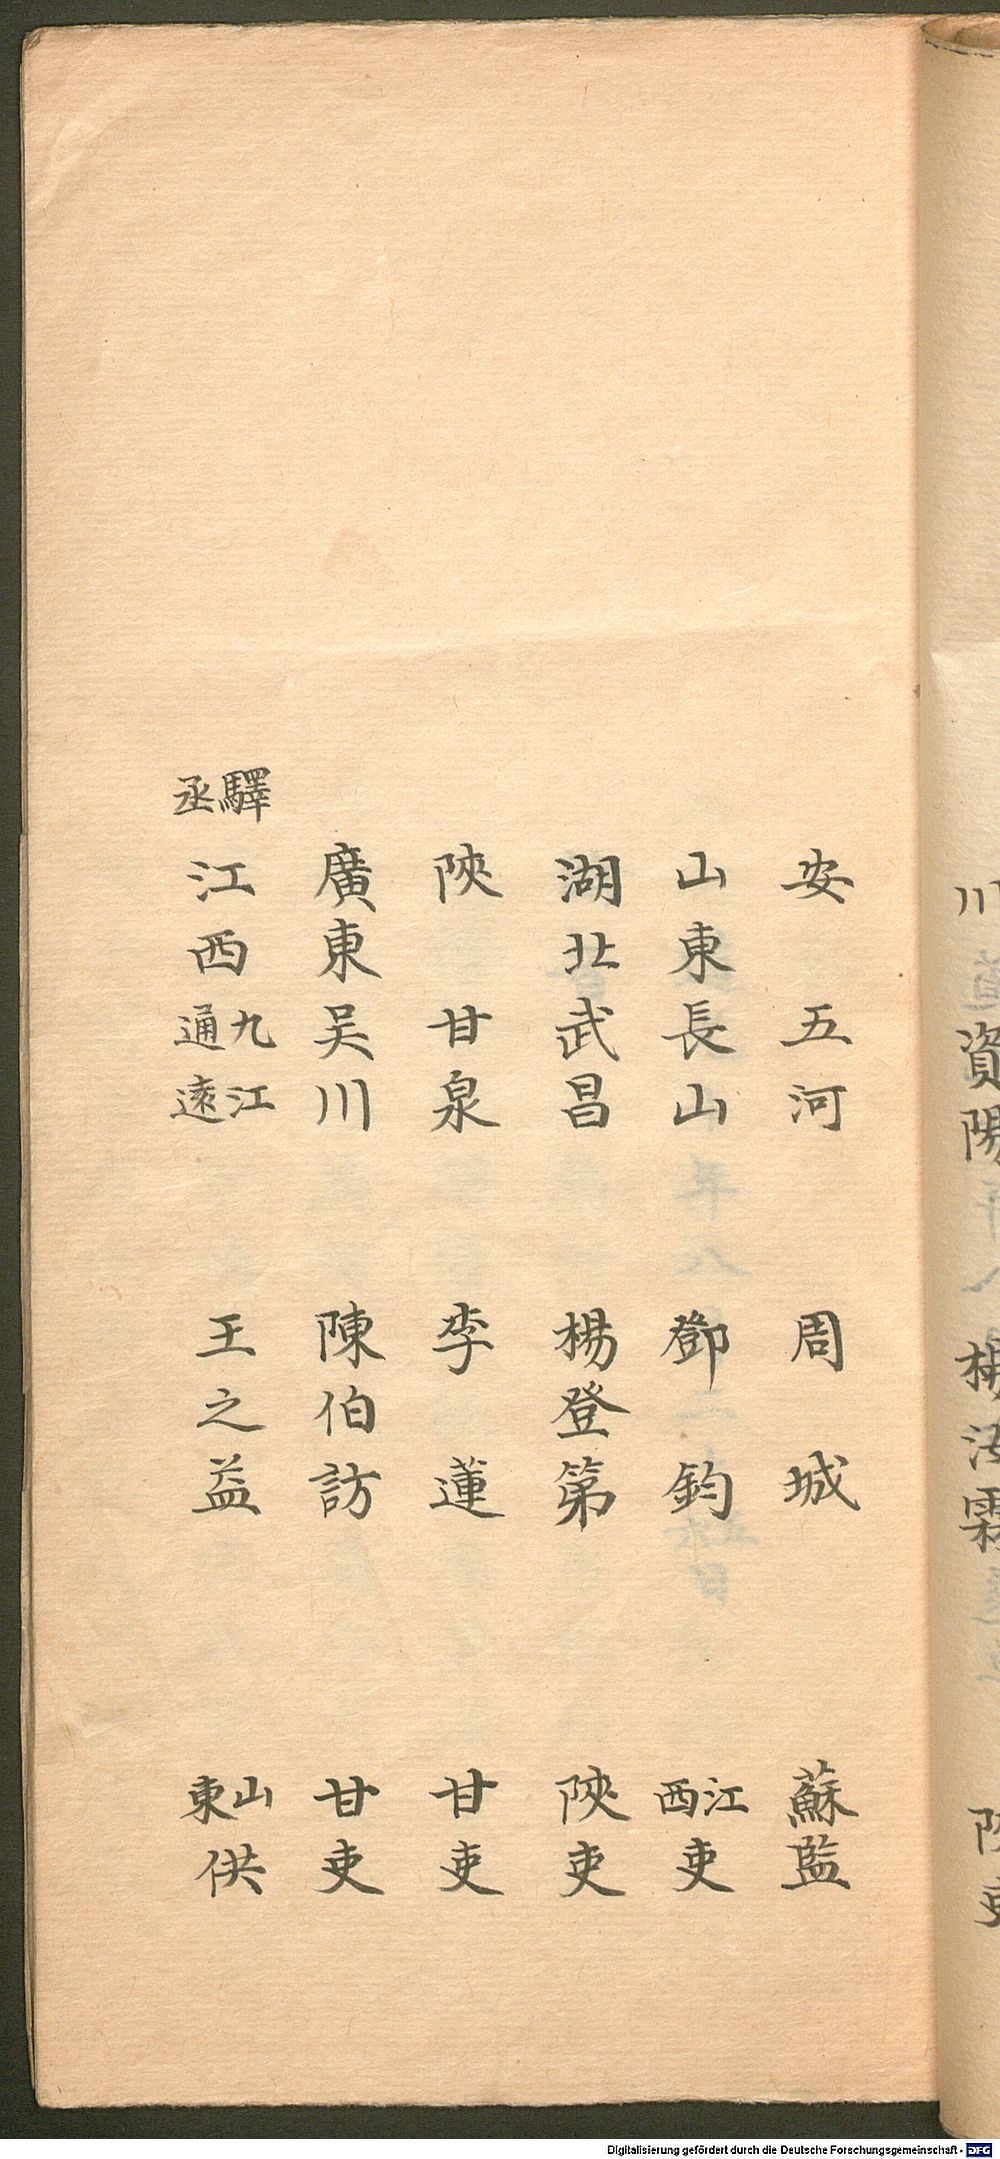 川 資陽 楊 霖
安 五河 周城 蘇監
山東長山 鄧鈞 江西吏
湖北武昌 楊登第 陝吏
陝 甘泉 李蓮 甘吏
廣東吴川 陳伯訪 甘吏
驛丞 江西九江通遠 王之益 山東供
Digitalisierung gefördert durch die Deutsche Forschungsgemeinschaft - DFG